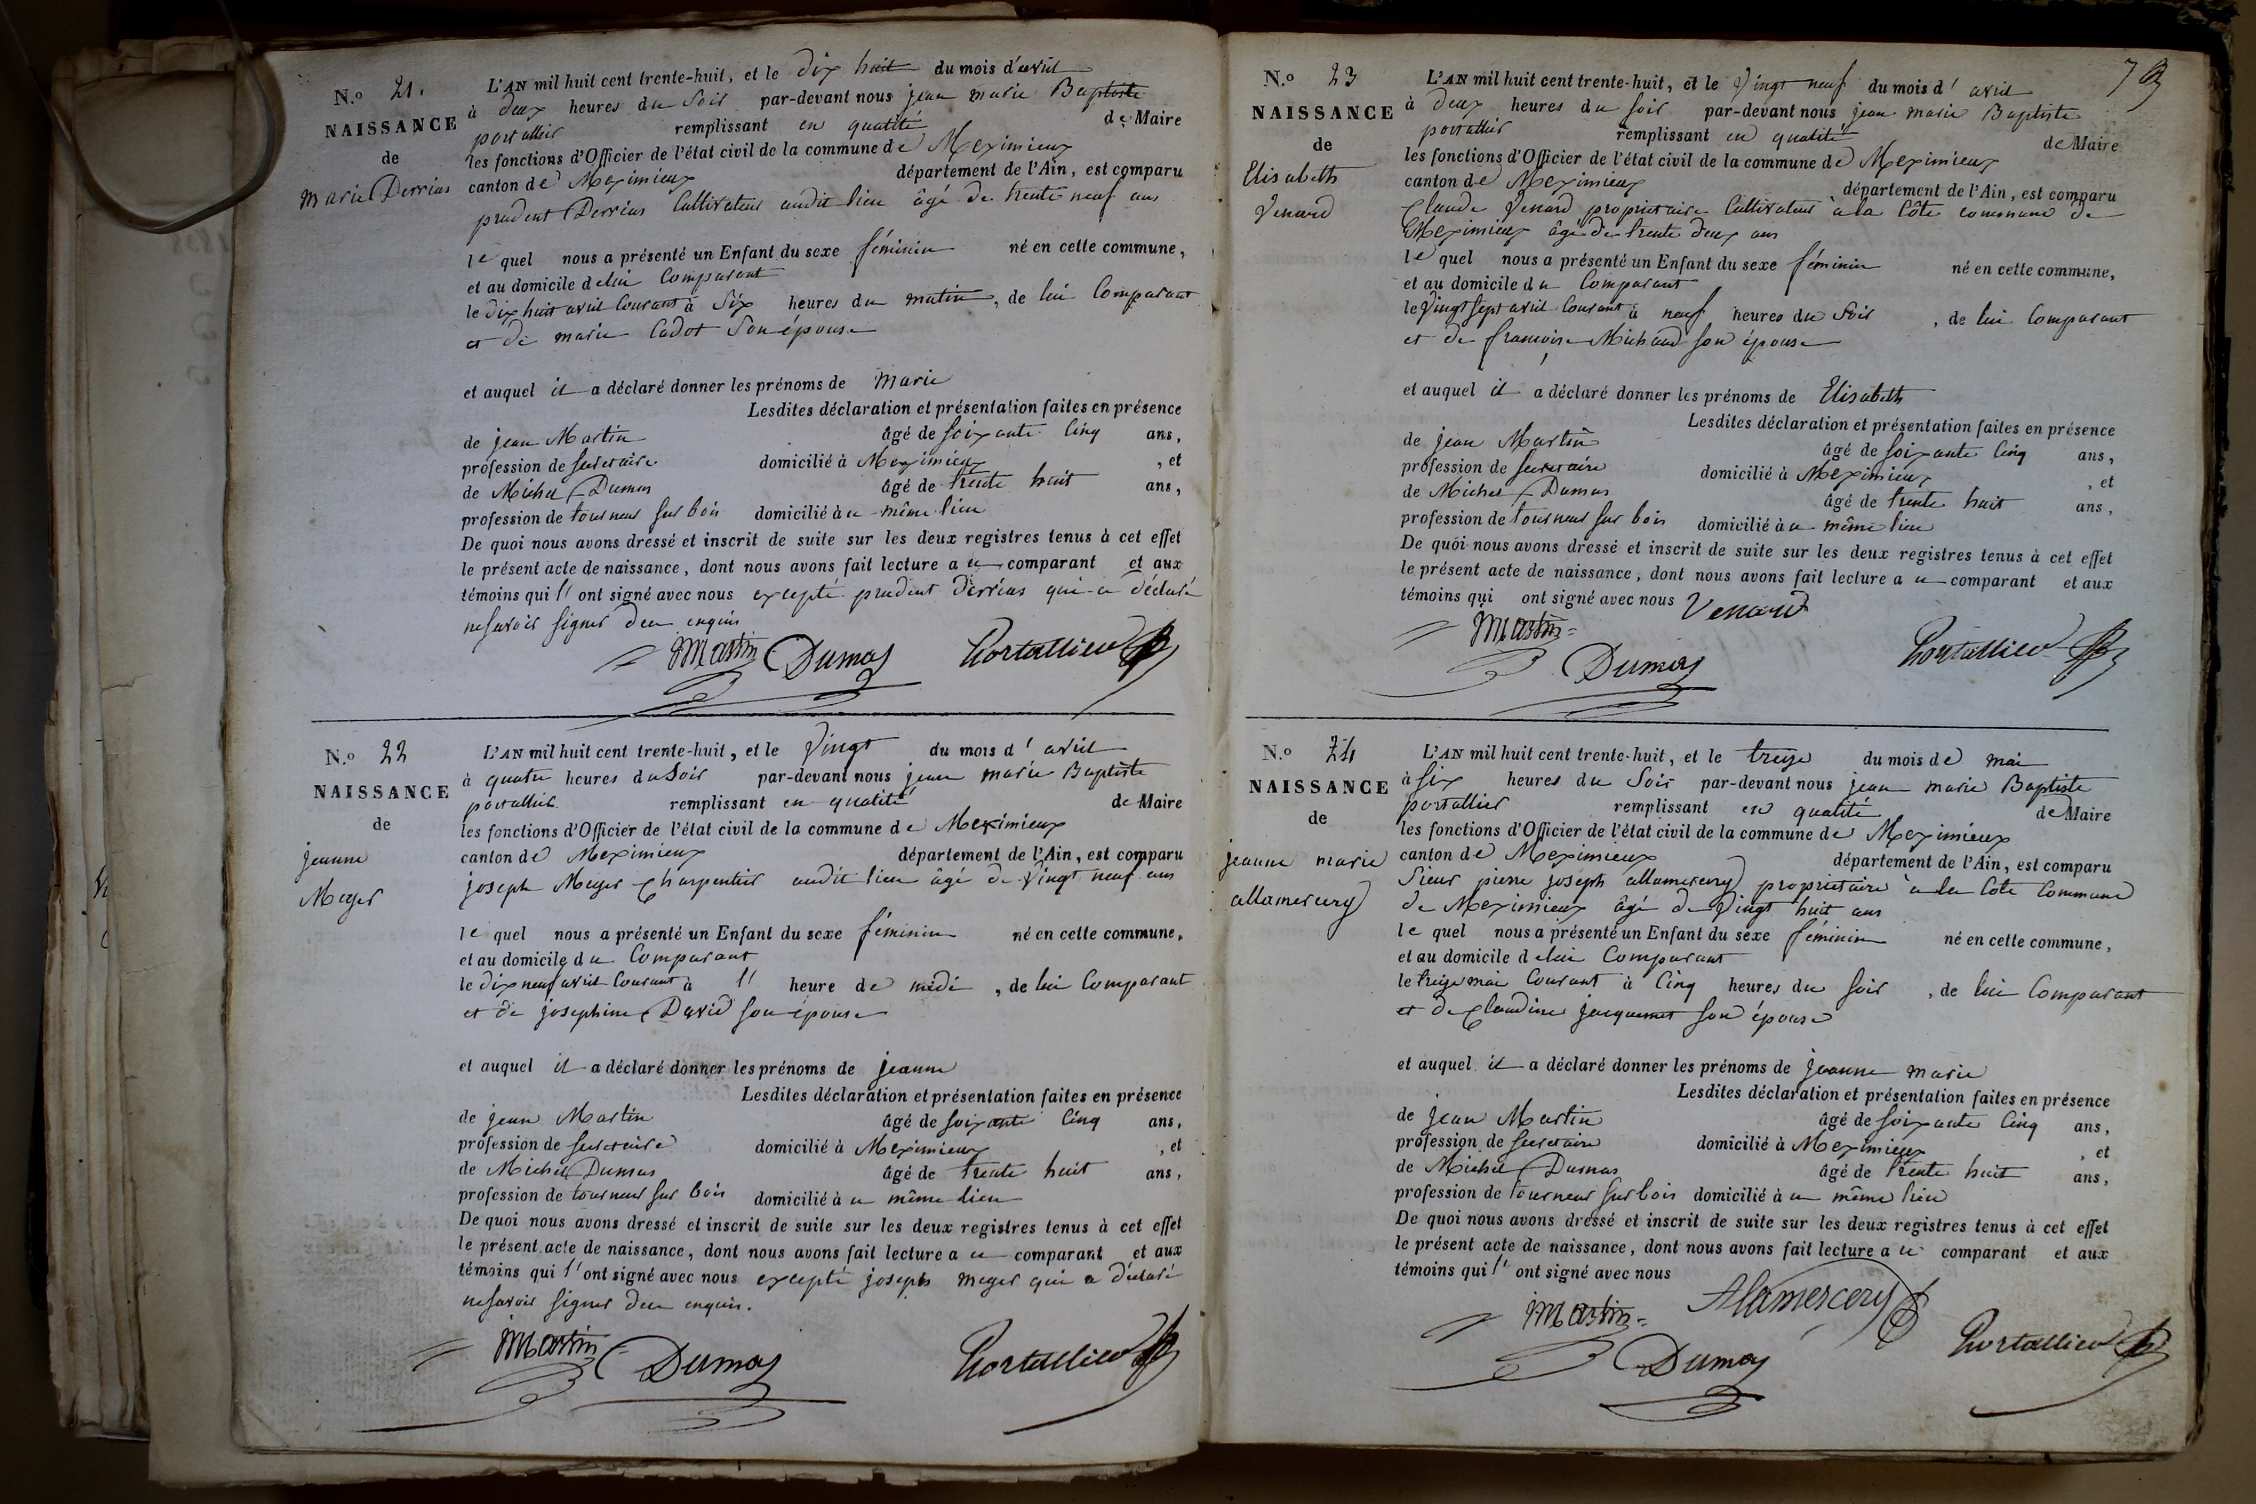 N.o 21.
NAISSANCE
de
Marie Derrias
L'AN mil huit cent trente-huit, et le dix huit du mois d'avril
à deux heures du soir par-devant nous jean marie Baptiste
portallier remplissant en qualité de Maire
les fonctions d'Officier de l'état civil de la commune de Meximieux
canton de Meximieux département de l'Ain, est comparu
prudent Derrias Cultivateur audit lieu âgé de trente neuf ans
le quel nous a présenté un Enfant du sexe féminin né en cette commune,
et au domicile de lui Comparant
le dix huit avril Courant à Six heures du matin, de lui Comparant
et de marie Cadot Son épouse
et auquel il a déclaré donner les prénoms de Marie
Lesdites déclaration et présentation faites en présence
de jean Martin âgé de soixante Cinq ans,
profession de Secretaire domicilié à Meximieux, et
de Michel Dumas âgé de trente huit ans,
profession de tourneur sur bois domicilié à u même lieu
De quoi nous avons dressé et inscrit de suite sur les deux registres tenus à cet effet
le présent acte de naissance, dont nous avons fait lecture a u comparant et aux
témoins qui l' ont signé avec nous excepté prudent Derrias qui a déclaré
ne savoir signer de ce enquis
Martin Dumas Portallier
N.o 22
NAISSANCE
de
jeanne
Meyer
L'AN mil huit cent trente-huit, et le Vingt du mois d' avril
à quatre heures du Soir par-devant nous jean marie Baptiste
portallier remplissant en qualité de Maire
les fonctions d'Officier de l'état civil de la commune de Meximieux
canton de Meximieux département de l'Ain, est comparu
joseph Meyer Charpentier audit lieu âgé de Vingt neuf ans
le quel nous a présenté un Enfant du sexe féminin né en cette commune,
et au domicile du Comparant
le dix neuf avril Courant à l' heure de midi, de lui Comparant
et de josephine David son épouse
et auquel il a déclaré donner les prénoms de jeanne
Lesdites déclaration et présentation faites en présence
de jean Martin âgé de soixante Cinq ans,
profession de Secretaire domicilié à Meximieux, et
de Michel Dumas âgé de trente huit ans,
profession de tourneur sur bois domicilié à u même lieu
De quoi nous avons dressé et inscrit de suite sur les deux registres tenus à cet effet
le présent acte de naissance, dont nous avons fait lecture a u comparant et aux
témoins qui l' ont signé avec nous excepté joseph meyer qui a déclaré
ne savoir signer de ce enquis.
Martin Dumas Portallier
7
N.o 23
NAISSANCE
de
Elisabeth
Venard
L'AN mil huit cent trente-huit, et le Vingt neuf du mois d' avril
à deux heures du soir par-devant nous jean marie Baptiste
portallier remplissant en qualité de Maire
les fonctions d'Officier de l'état civil de la commune de Meximieux
canton de Meximieux département de l'Ain, est comparu
Claude Venard proprietaire Cultivateur à la Côte commune de
Meximieux âgé de trente deux ans
le quel nous a présenté un Enfant du sexe féminin né en cette commune,
et au domicile du Comparant
le Vingt sept avril Courant à neuf heures du Soir, de lui Comparant
et de francoise Michaud son épouse
et auquel il a déclaré donner les prénoms de Elisabeth
Lesdites déclaration et présentation faites en présence
de jean Martin âgé de soixante Cinq ans,
profession de Secretaire domicilié à Meximieux, et
de Michel Dumas âgé de trente huit ans,
profession de tourneur sur bois domicilié à u même lieu
De quoi nous avons dressé et inscrit de suite sur les deux registres tenus à cet effet
le présent acte de naissance, dont nous avons fait lecture a u comparant et aux
témoins qui ont signé avec nous Venard
Martin Dumas Portallier
N.o 24
NAISSANCE
de
jeanne marie
allamercery
L'AN mil huit cent trente-huit, et le treize du mois de mai
à Six heures du Soir par-devant nous jean marie Baptiste
portallier remplissant en qualité de Maire
les fonctions d'Officier de l'état civil de la commune de Meximieux
canton de Meximieux département de l'Ain, est comparu
Sieur pierre joseph allamercery proprietaire à la Cote Commune
de Meximieux âgé de Vingt huit ans
le quel nous a présenté un Enfant du sexe féminin né en cette commune,
et au domicile de lui Comparant
le treize mai Courant à Cinq heures du Soir, de lui Comparant
et de Claudine jacquemet son épouse
et auquel il a déclaré donner les prénoms de jeanne marie
Lesdites déclaration et présentation faites en présence
de jean Martin âgé de soixante Cinq ans,
profession de Secretaire domicilié à Meximieux, et
de Michel Dumas âgé de trente huit ans,
profession de tourneur sur bois domicilié à u même lieu
De quoi nous avons dressé et inscrit de suite sur les deux registres tenus à cet effet
le présent acte de naissance, dont nous avons fait lecture a u comparant et aux
témoins qui l' ont signé avec nous
Martin Alamercery
Dumas Portallier